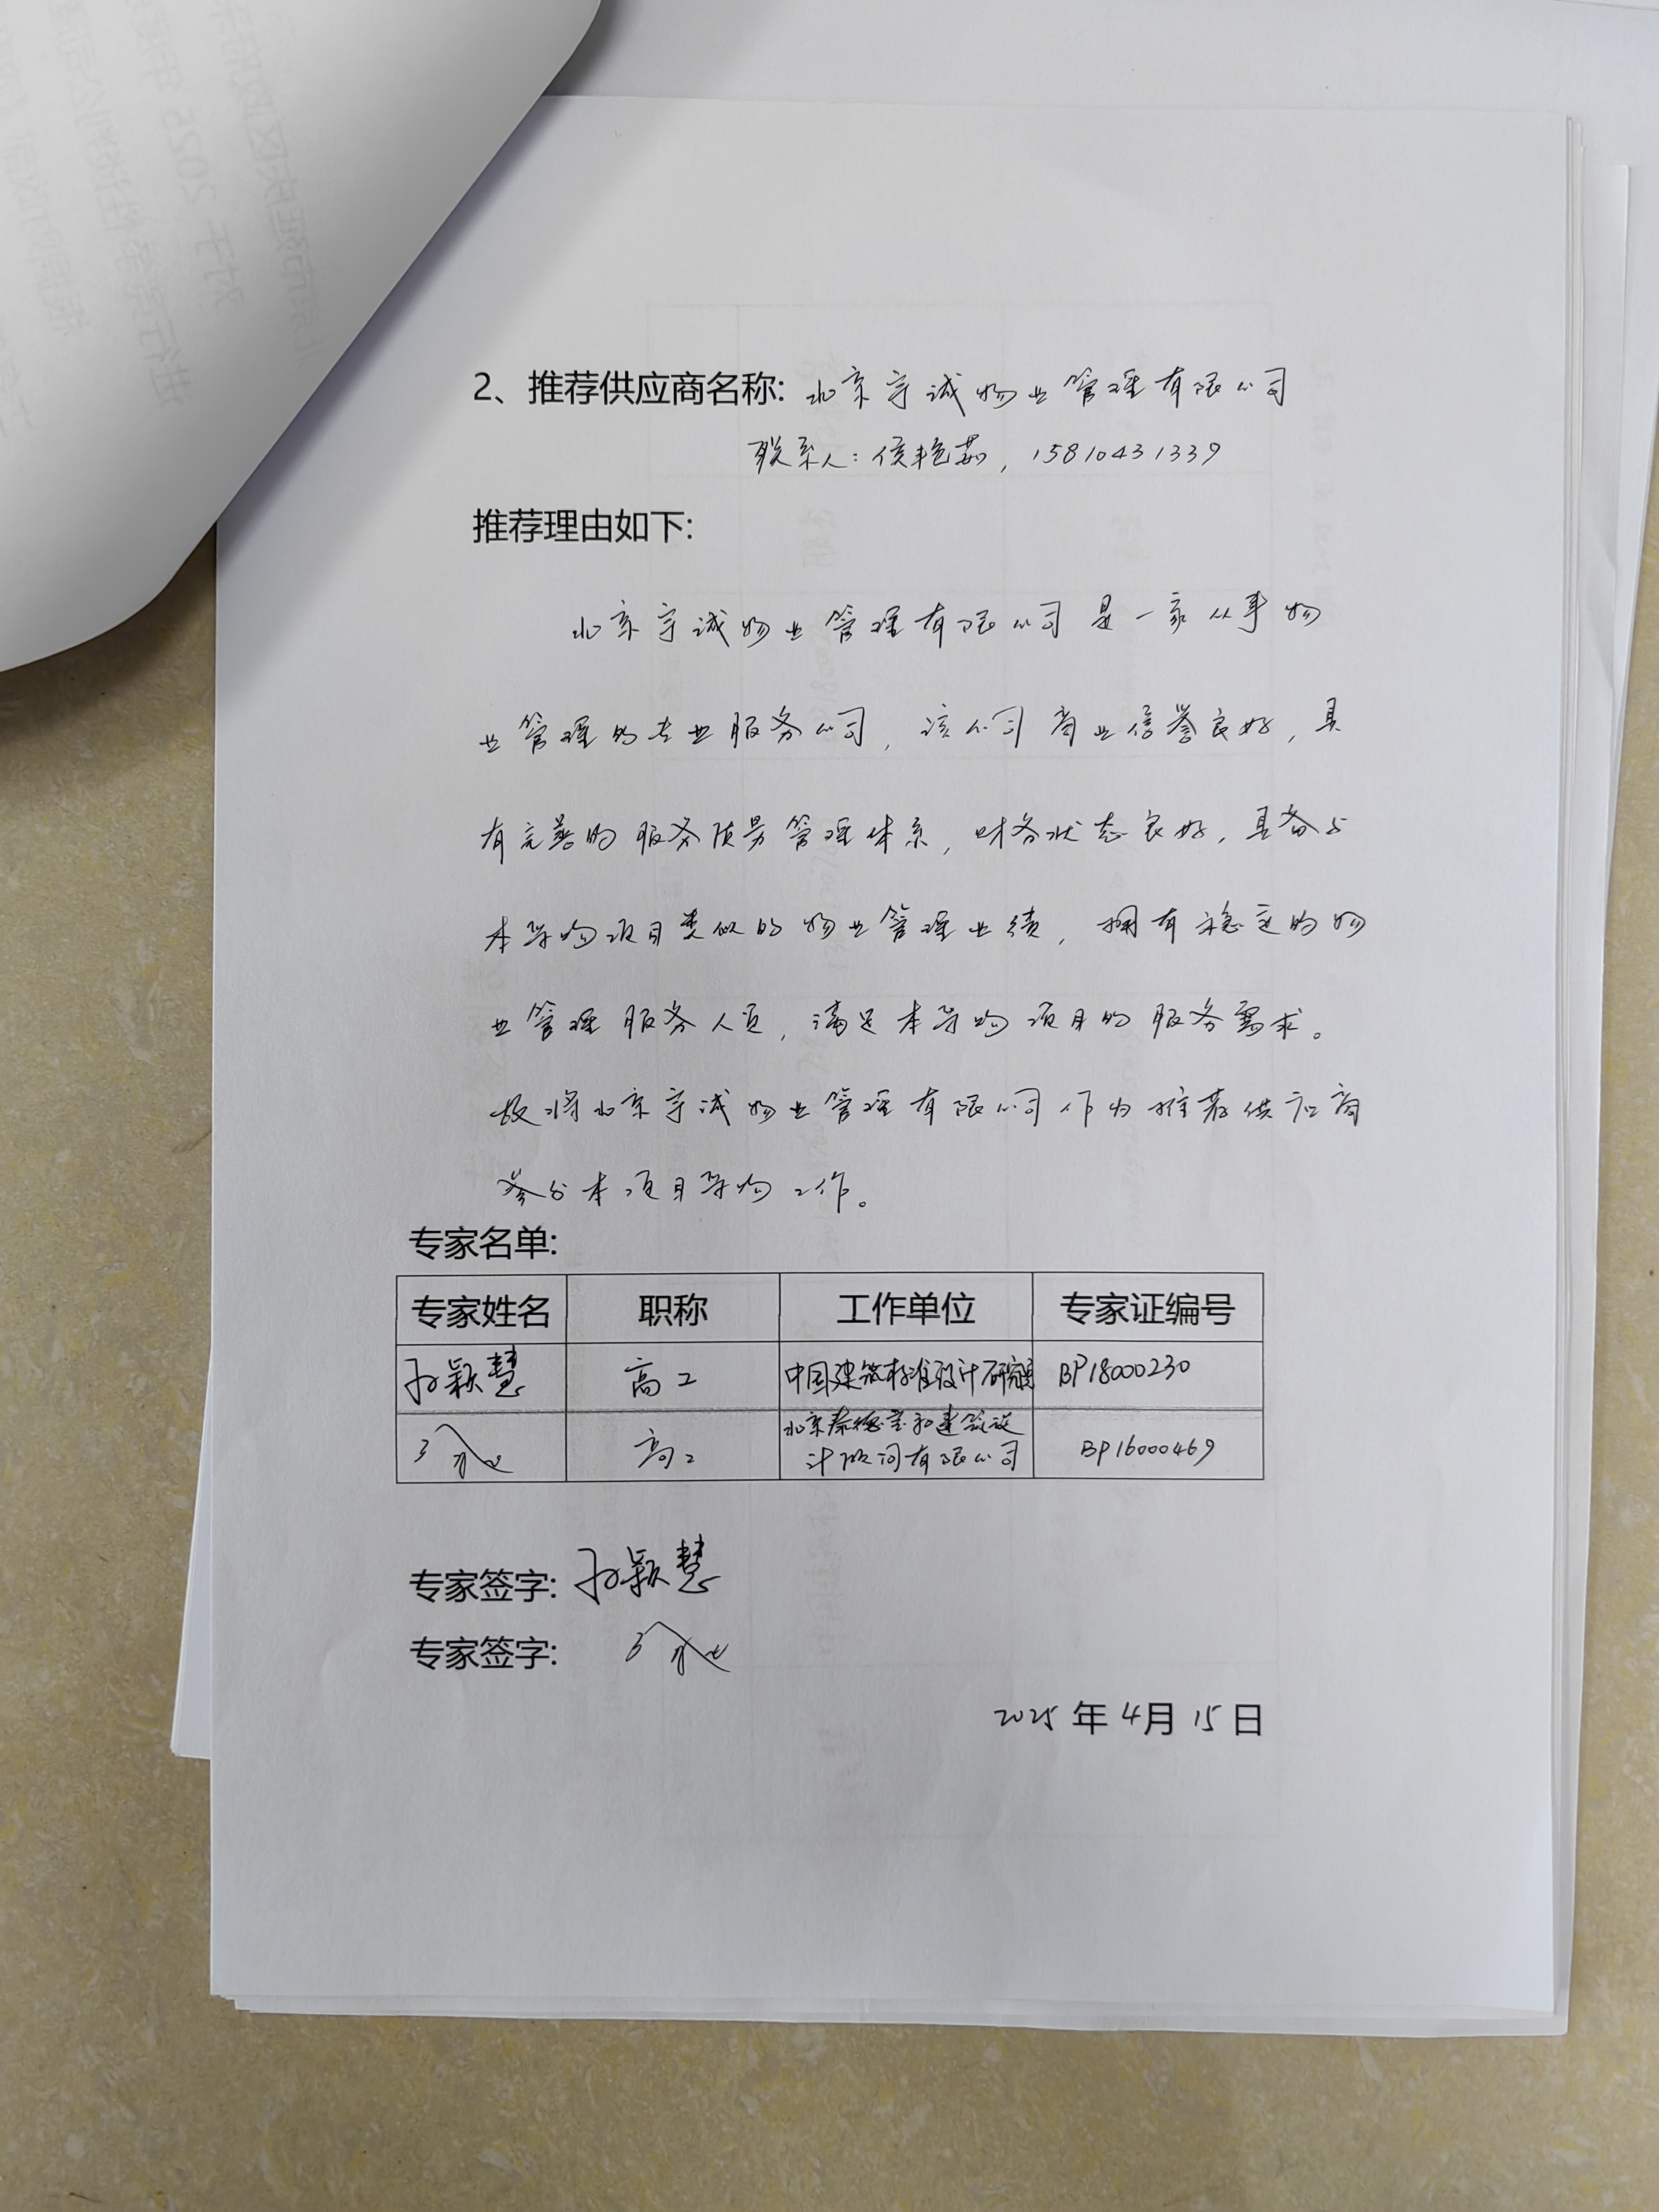 2、推荐供应商名称: 北京宇诚物业管理有限公司
联系人: 侯艳茹, 15810431339
推荐理由如下:
北京宇诚物业管理有限公司是一家从事物
业管理的专业服务公司, 该公司商业信誉良好, 具
有完善的服务质量管理体系, 财务状态良好, 具备与
本采购项目类似的物业管理业绩, 拥有稳定的物
业管理服务人员, 满足本采购项目的服务需求。
故将北京宇诚物业管理有限公司作为推荐供应商
参与本项目采购工作。
专家名单:
专家姓名 职称 工作单位 专家证编号
孙颖慧 高工 中国建筑标准设计研究院 BP18000230
高工 北京泰德宝和建筑设
计顾问有限公司 BP16000469
专家签字: 孙颖慧
专家签字:
2025 年 4月 15 日